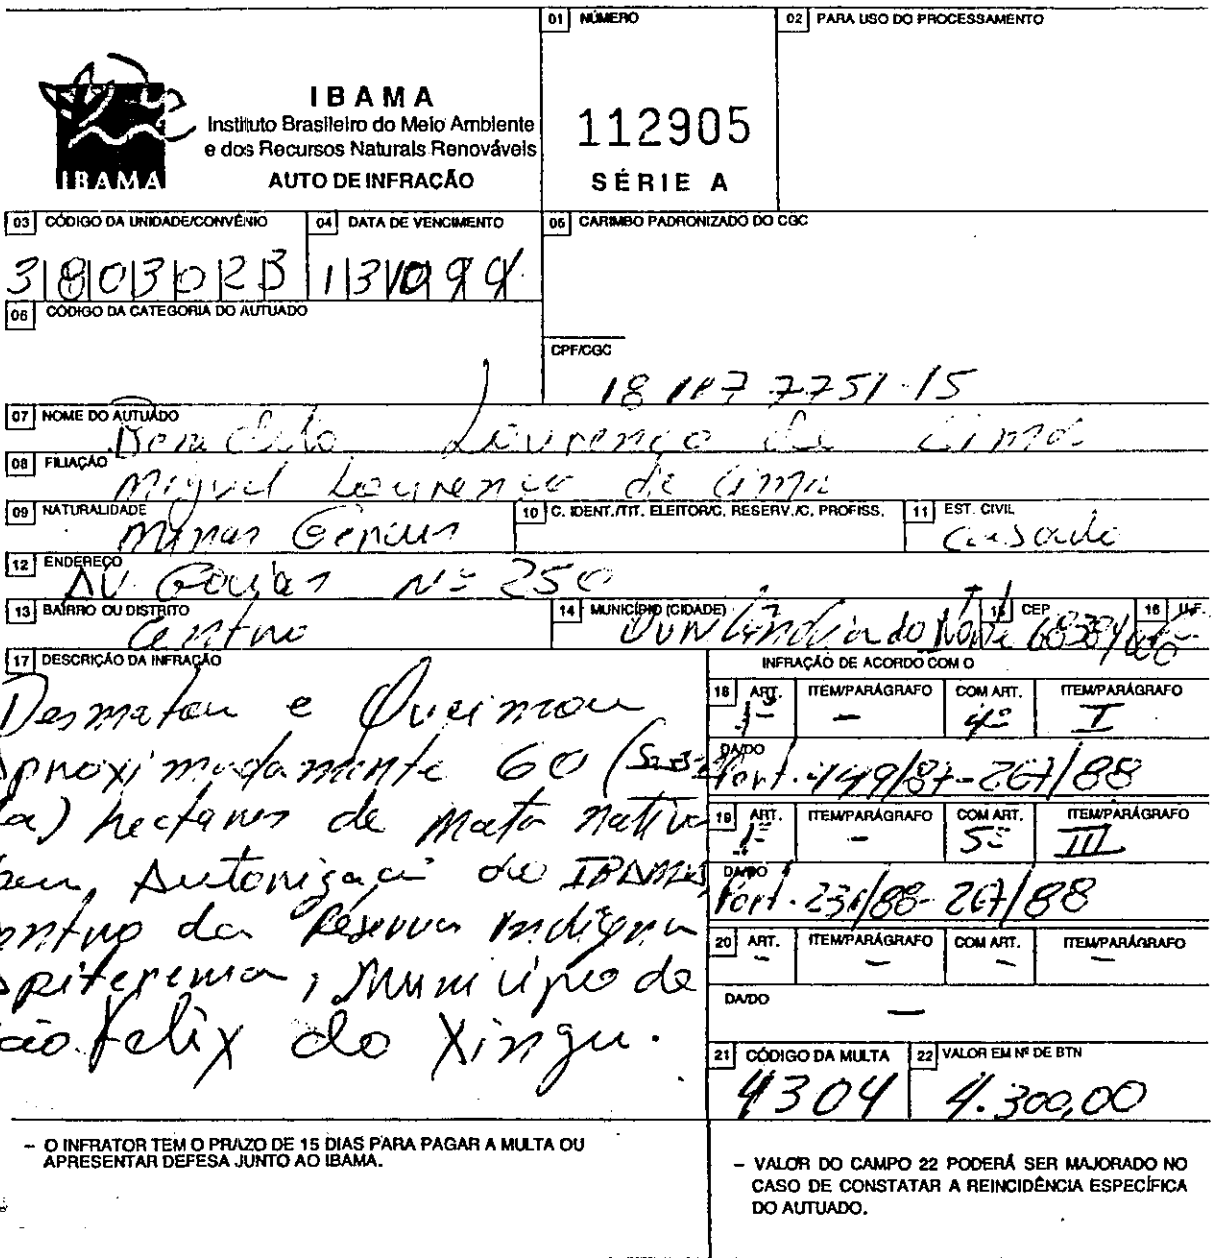 01 NÚMERO
02 PARA USO DO PROCESSAMENTO
IBAMA
IBAMA
Instituto Brasileiro do Meio Ambiente
e dos Recursos Naturais Renováveis
AUTO DE INFRAÇÃO
112905
SÉRIE A
03 CÓDIGO DA UNIDADE/CONVÊNIO
04 DATA DE VENCIMENTO
05 CARIMBO PADRONIZADO DO CGC
131099
06 CÓDIGO DA CATEGORIA DO AUTUADO
CPF/CGC
07 NOME DO AUTUADO
Lourenço de Lima
08 FILIAÇÃO
Miguel Lourenço de Lima
09 NATURALIDADE
Minas Gerais
10 C. IDENT./TIT. ELEITOR/C. RESERV./C. PROFISS.
11 EST. CIVIL
Casado
12 ENDEREÇO
AV. Goyas Nº 250
13 BAIRRO OU DISTRITO
Centro
14 MUNICÍPIO (CIDADE)
do Norte
15 CEP
16 U.F.
17 DESCRIÇÃO DA INFRAÇÃO
Desmatou e Queimou
Aproximadamente 60 (Sessen
ta) hectares de Mata nativa
sem, Autorização do IBAMA,
dentro da Reserva Indígena
Apiterewa, Município de
São Felix do Xingu.
INFRAÇÃO DE ACORDO COM O
18 ART. ITEM/PARÁGRAFO COM ART. ITEM/PARÁGRAFO
1º - 4º I
DA/DO
Port. 449/87-267/88
19 ART. ITEM/PARÁGRAFO COM ART. ITEM/PARÁGRAFO
1º - 5º III
DA/DO
Port. 231/88-267/88
20 ART. ITEM/PARÁGRAFO COM ART. ITEM/PARÁGRAFO
- - - -
DA/DO
-
21 CÓDIGO DA MULTA
22 VALOR EM Nº DE BTN
4304
4.300,00
- O INFRATOR TEM O PRAZO DE 15 DIAS PARA PAGAR A MULTA OU
APRESENTAR DEFESA JUNTO AO IBAMA.
- VALOR DO CAMPO 22 PODERÁ SER MAJORADO NO
CASO DE CONSTATAR A REINCIDÊNCIA ESPECÍFICA
DO AUTUADO.